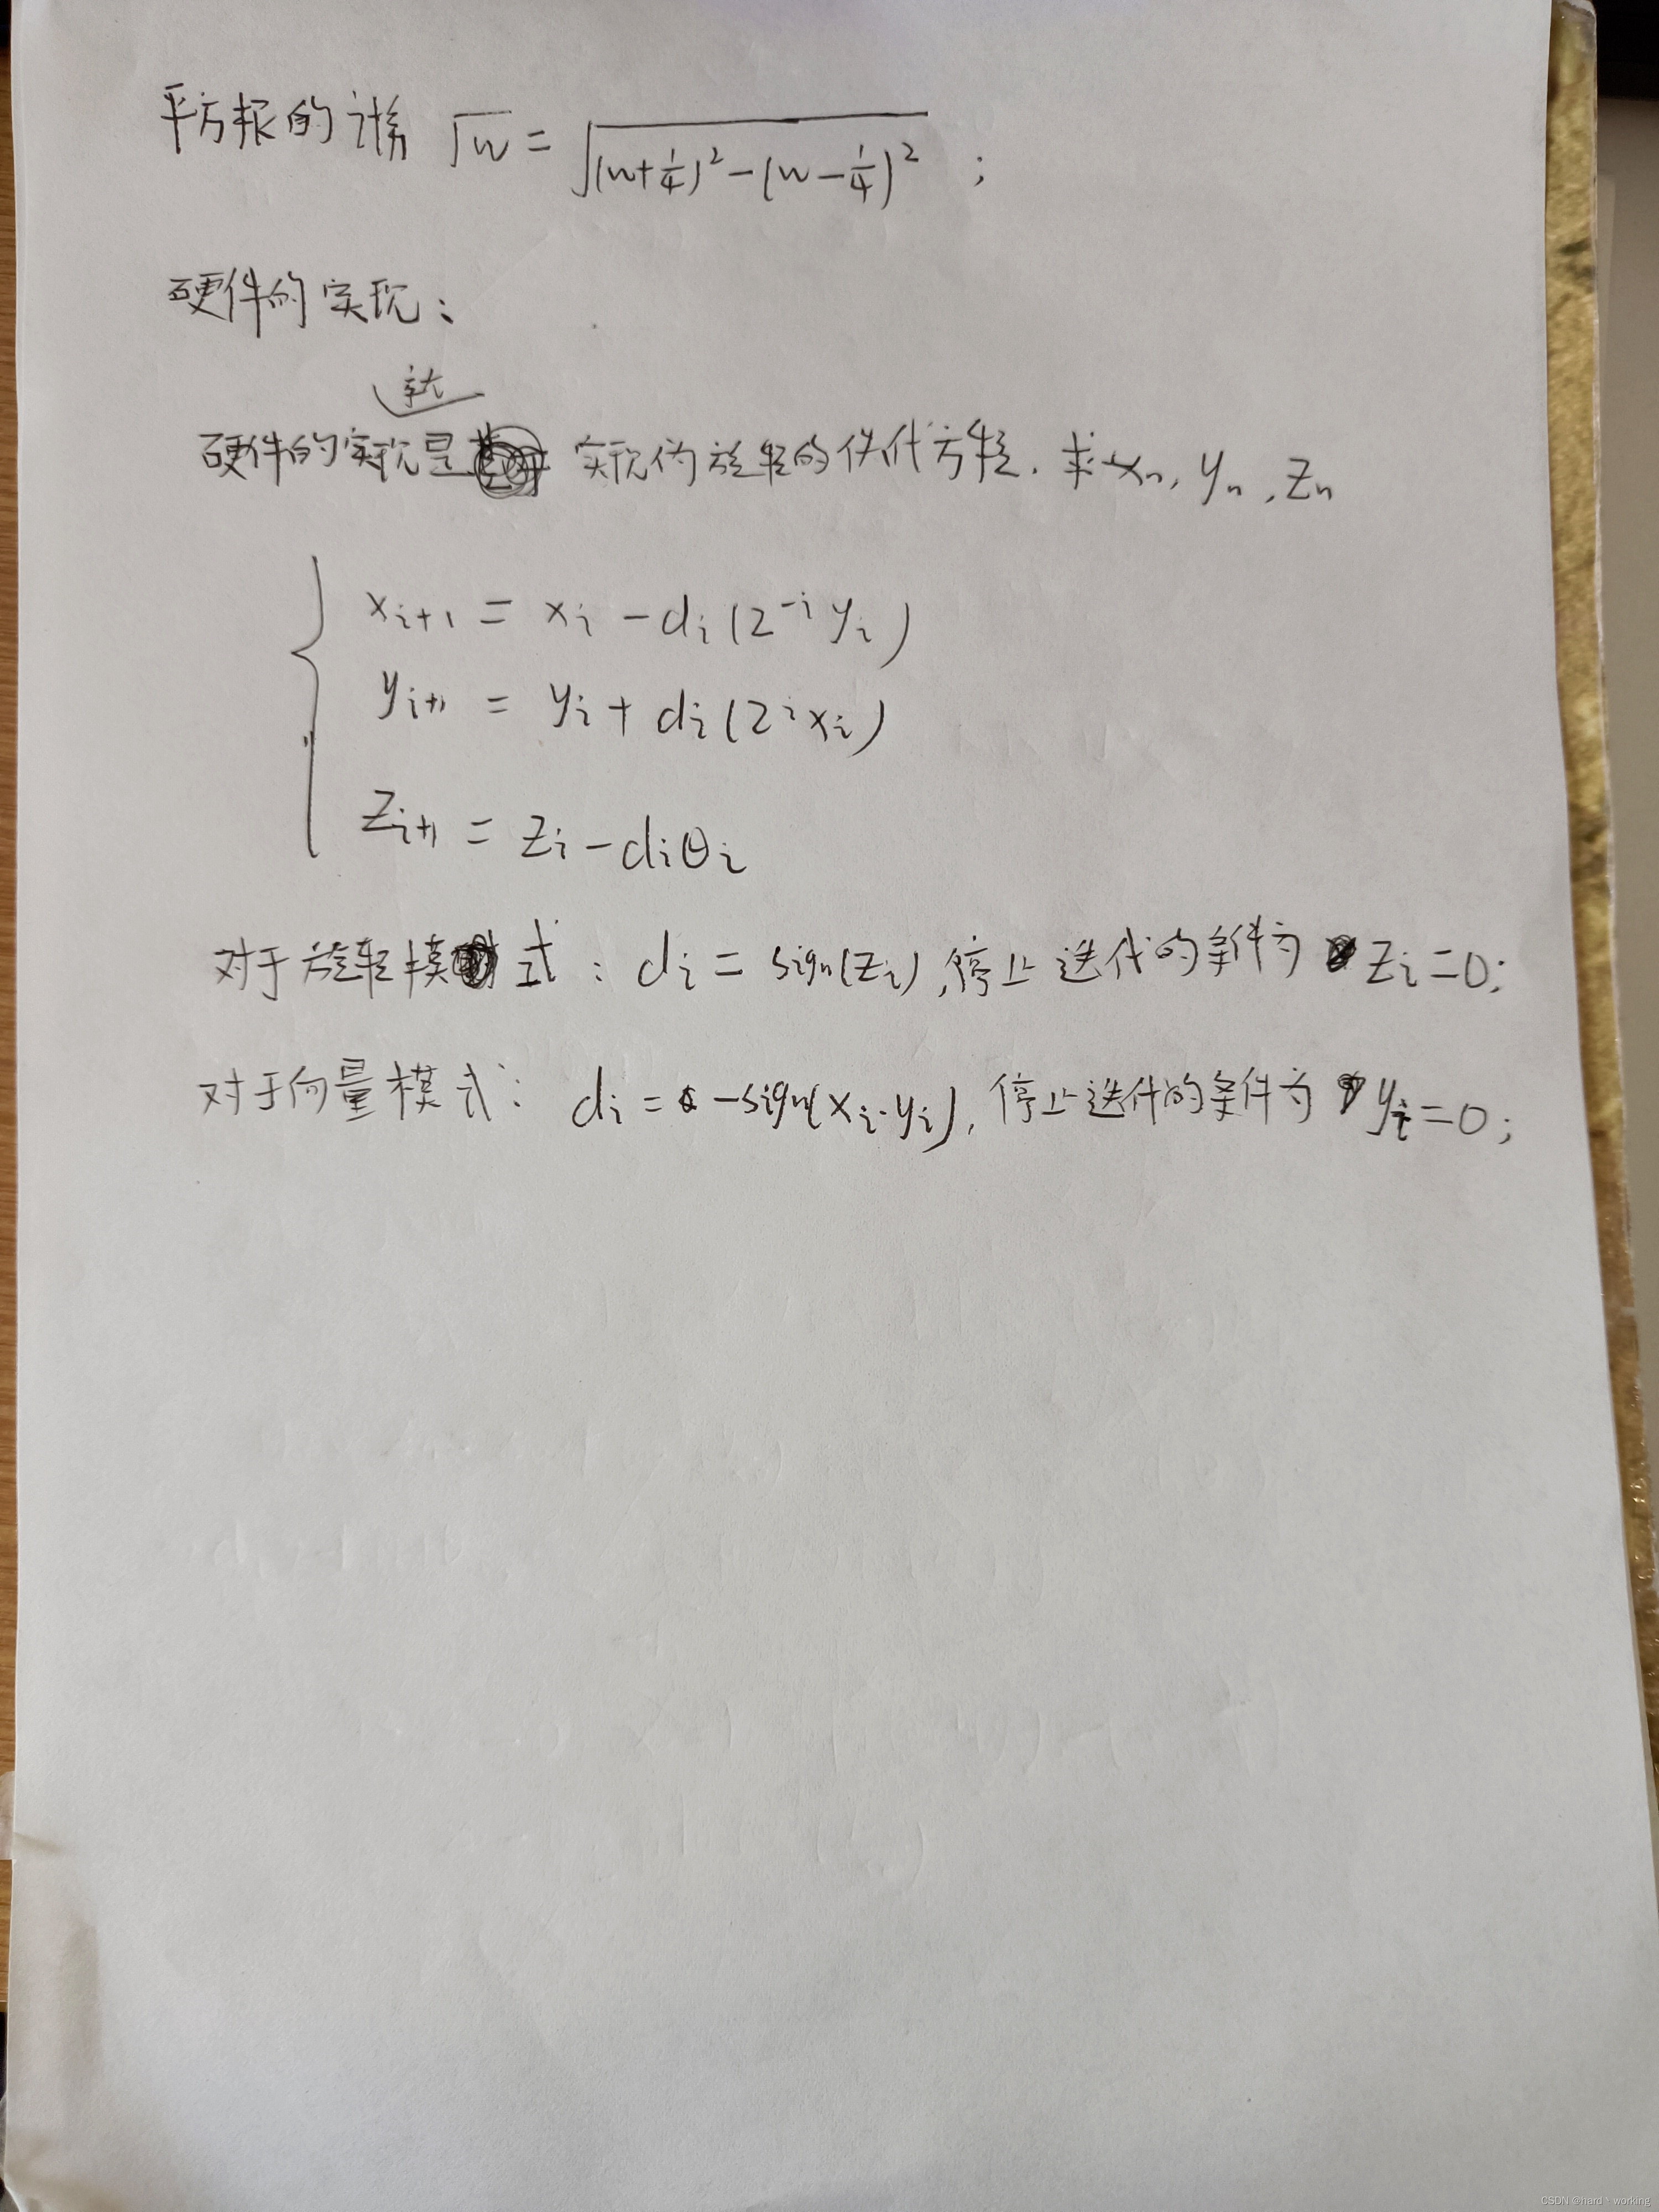 平方根的计算 √w = √((w+1/4)² - (w-1/4)²) ;
硬件的实现:
就
硬件的实现是 实现伪旋转的迭代方程. 求 xn, yn, zn
x_{i+1} = x_i - d_i (2^{-i} y_i)
y_{i+1} = y_i + d_i (2^i x_i)
z_{i+1} = z_i - d_i θ_i
对于旋转模式: d_i = sign(z_i), 停止迭代的条件为 z_i = 0;
对于向量模式: d_i = -sign(x_i·y_i), 停止迭代的条件为 y_i = 0;
CSDN @hard丶working